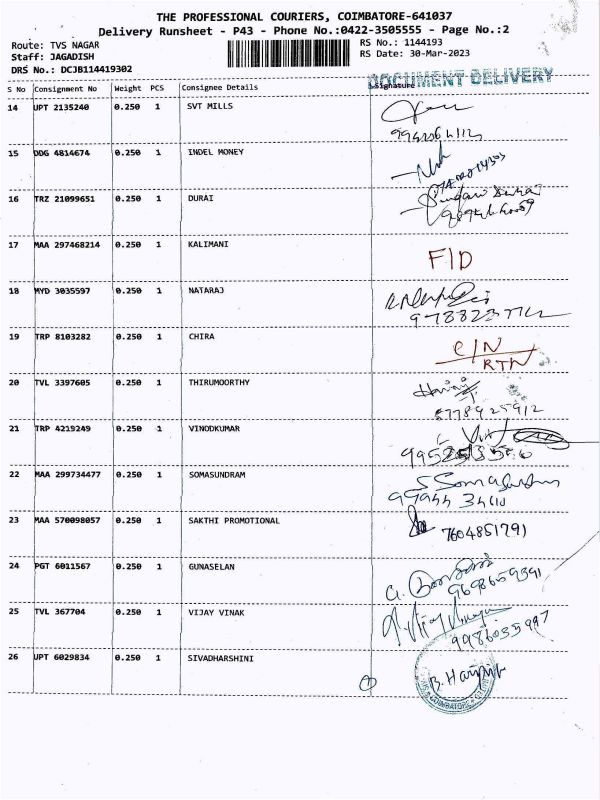 THE PROFESSIONAL COURIERS, COIMBATORE-641037
Delivery Runsheet - P43 - Phone No.:0422-3505555 - Page No.:2
Route: TVS NAGAR
RS No.: 1144193
Staff: JAGADISH
RS Date: 30-Mar-2023
DRS No.: DCJB114419302
DOCUMENT DELIVERY
S No Consignment No Weight PCS Consignee Details Signature
14 UPT 2135240 0.250 1 SVT MILLS
15 DDG 4814674 0.250 1 INDEL MONEY
16 TRZ 21099651 0.250 1 DURAI
17 MAA 297468214 0.250 1 KALIMANI
F/D
18 MYD 3035597 0.250 1 NATARAJ
19 TRP 8103282 0.250 1 CHIRA
C/N
RTN
20 TVL 3397605 0.250 1 THIRUMOORTHY
8778925912
21 TRP 4219249 0.250 1 VINODKUMAR
22 MAA 299734477 0.250 1 SOMASUNDRAM
23 MAA 570098057 0.250 1 SAKTHI PROMOTIONAL
7604851791
24 PGT 6011567 0.250 1 GUNASELAN
9698659391
25 TVL 367704 0.250 1 VIJAY VINAK
9986035997
26 UPT 6029834 0.250 1 SIVADHARSHINI
COIMBATORE